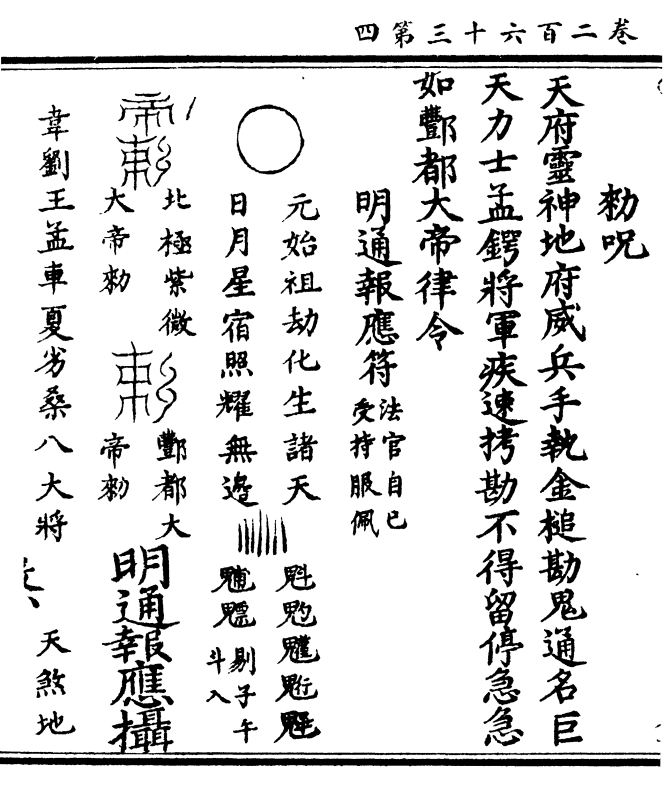 卷二百六十三第四
勑呪
天府靈神地府威兵手執金槌勘鬼通名巨
天力士孟鍔將軍疾速拷勘不得留停急急
如酆都大帝律令
明通報應符
法官自己
受持服佩
元始祖劫化生諸天
日月星宿照耀無邊
魁
剔子午
斗入
北極紫微
大帝勑
酆都大
帝勑
明通報應攝
韋劉王孟車夏劣桑八大將
天煞地